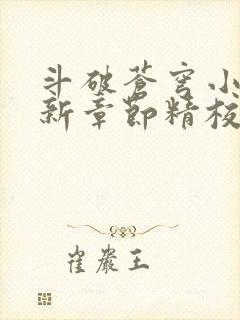 斗破苍穹小
新章节精校
崔岩王